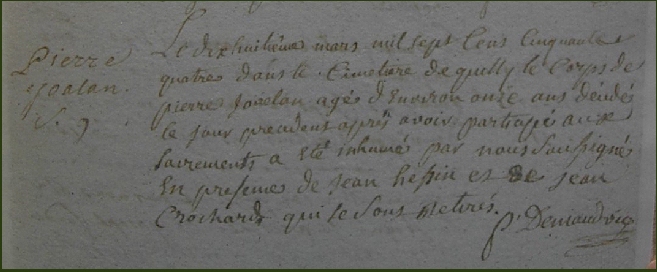 Pierre
joalan
S. 9
Le dixhuitième mars mil sept Cens Cinquante
quatre dans le Cimetiere de quilly le Corps de
pierre joalan agé d'Environ onze ans decedé
le jour precedent apres avoir partagé aux
sacrements a eté inhumé par nous soussigné
En presence de jean heppin et de jean
Crochard qui se sont retirés.